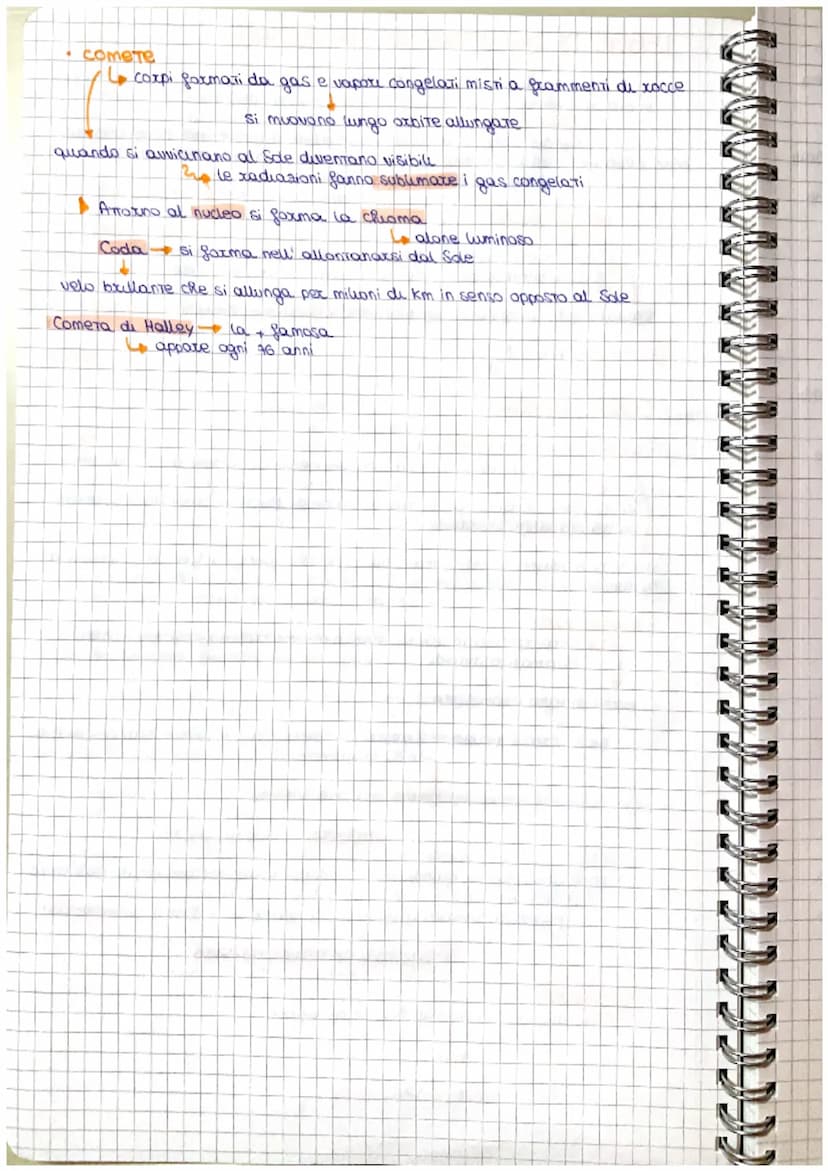 • COMETE
↳ corpi formati da gas e vapori congelati misti a frammenti di rocce
si muovono lungo orbite allungate
quando si avvicinano al Sole diventano visibili
↳ le radiazioni fanno sublimare i gas congelati
Attorno al nucleo si forma la chioma
↳ alone luminoso
Coda → si forma nell' allontanarsi dal Sole
velo brillante che si allunga per milioni di km in senso opposto al Sole
Cometa di Halley → la + famosa
↳ appare ogni 76 anni